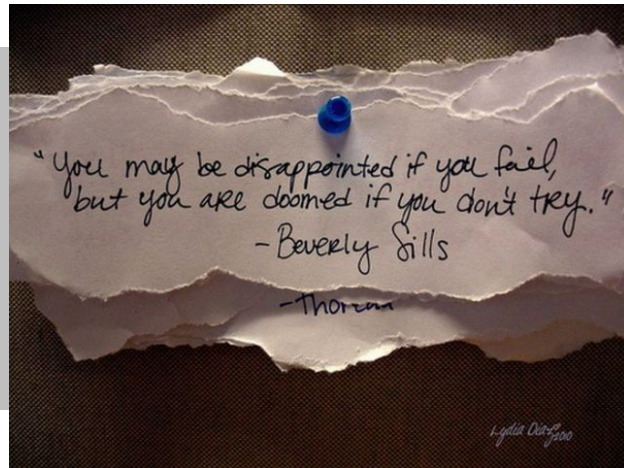 "You may be disappointed if you fail,
but you are doomed if you don't try."
-Beverly Sills
-Thoreau
Lydia Diaz 2010